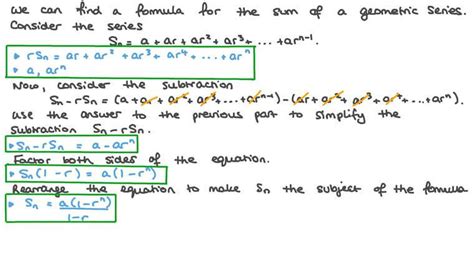 we can find a formula for the sum of a geometric series.
Consider the series
Sₙ = a + ar + ar² + ar³ + ... + arⁿ⁻¹.
▸ rSₙ = ar + ar² + ar³ + ar⁴ + ... + arⁿ
▸ a, arⁿ
Now, consider the subtraction
Sₙ - rSₙ = (a + ar + ar² + ar³ + ... + arⁿ⁻¹) - (ar + ar² + ar³ + ar⁴ + ... + arⁿ).
use the answer to the previous part to simplify the
subtraction Sₙ - rSₙ.
▸ Sₙ - rSₙ = a - arⁿ
Factor both sides of the equation.
▸ Sₙ(1 - r) = a(1 - rⁿ)
Rearrange the equation to make Sₙ the subject of the formula
▸ Sₙ = a(1 - rⁿ)
1 - r